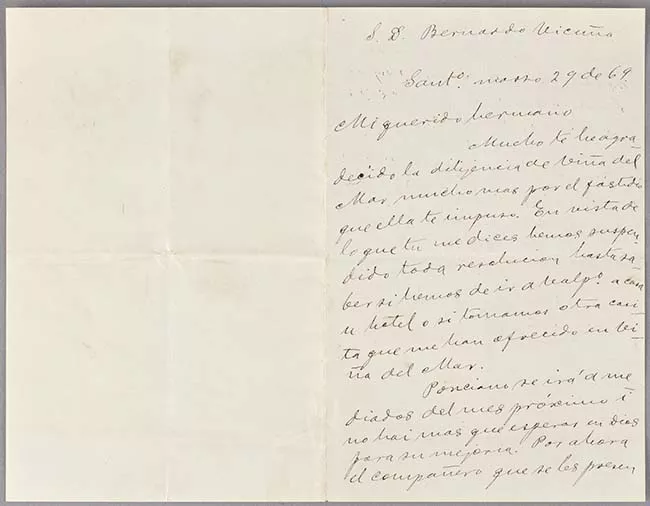 S. D. Bernardo Vicuña
Santo. marzo 29 de 69.
Mi querido hermano
Mucho te he agra-
decido la dilijencia de Viña del
Mar, mucho mas por el fastidio
que ella te impuso. En vista de
lo que tu me dices hemos suspen-
dido toda resolucion hasta sa-
ber si hemos de ir a Valpo. a casa
u hotel o si tomamos otra casi-
ta que me han ofrecido en Vi-
ña del Mar.
Ponciano se irá á me
diados del mes próximo i
no hai mas que esperar en Dios
para su mejoria. Por ahora
el compañero que se les presen